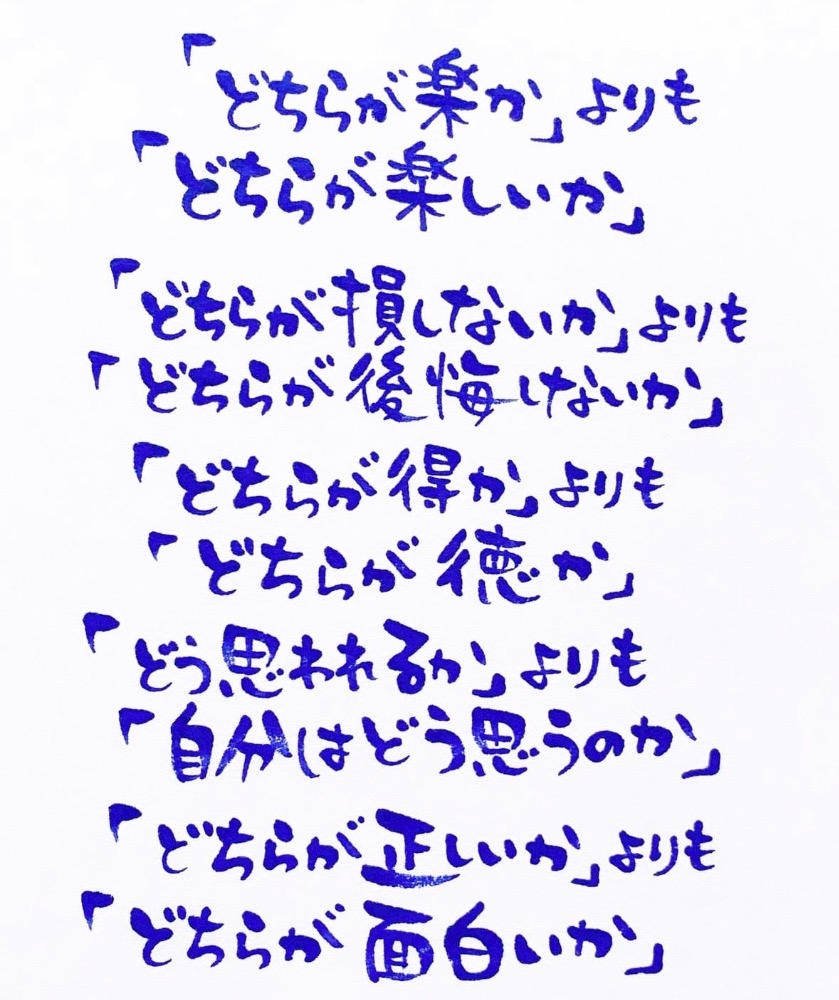 「どちらが楽か」よりも
「どちらが楽しいか」
「どちらが損しないか」よりも
「どちらが後悔しないか」
「どちらが得か」よりも
「どちらが徳か」
「どう思われるか」よりも
「自分はどう思うのか」
「どちらが正しいか」よりも
「どちらが面白いか」